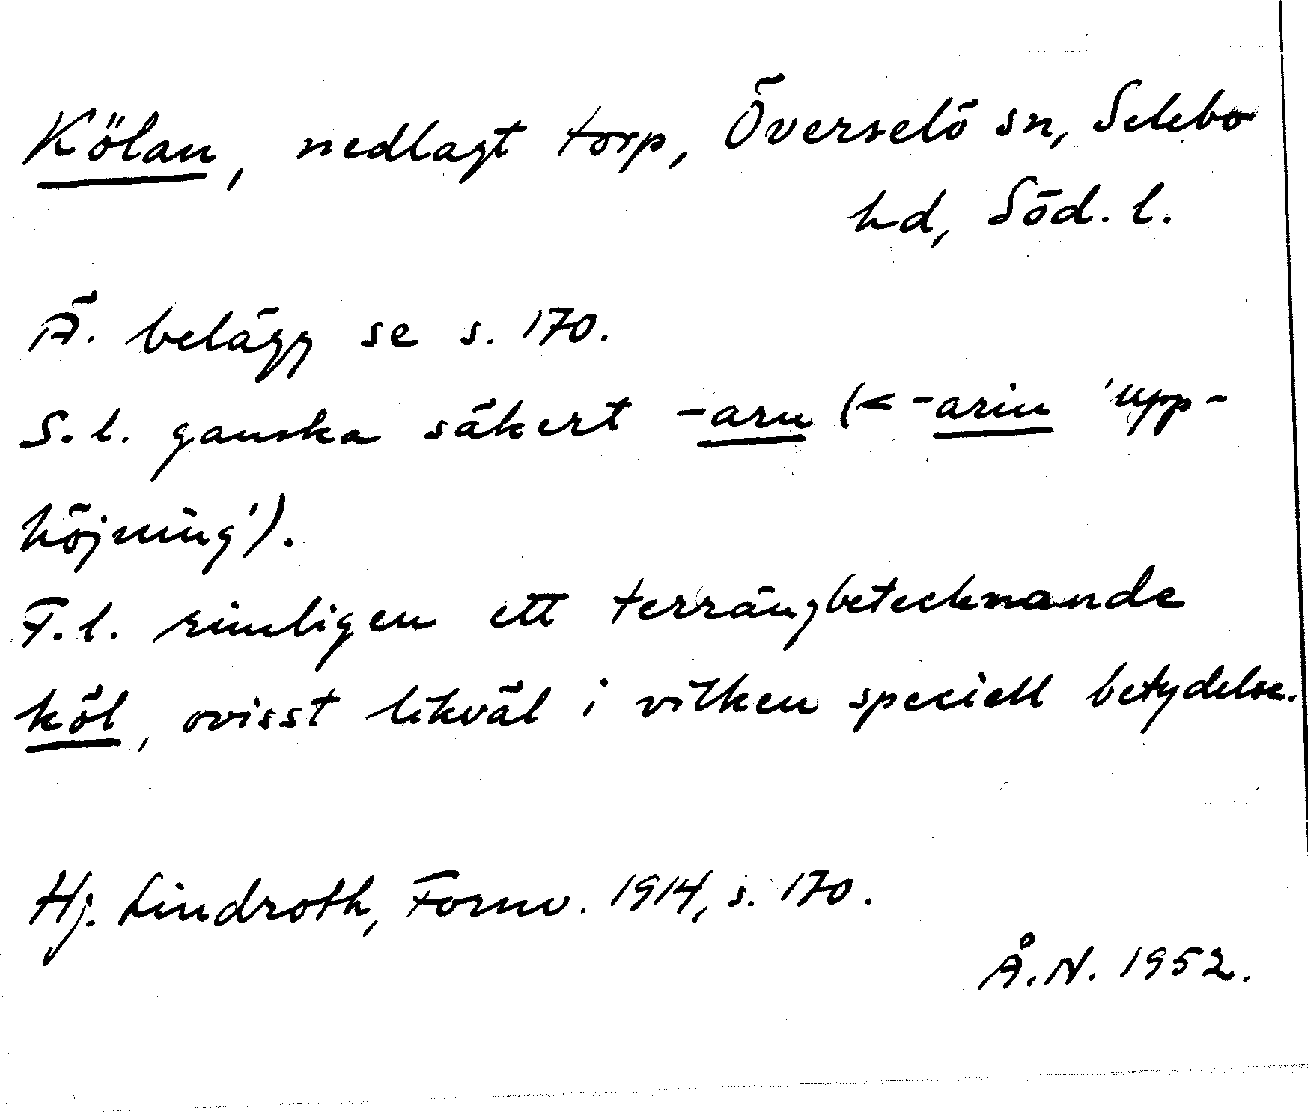 Kölan, nedlagt torp, Överselö sn, Selebo
hd, Söd. l.
Ä. belägg se s. 170.
S.l. ganska säkert -arn (< -arin 'upp-
höjning').
F.l. rimligen ett terrängbetecknande
köl, ovisst likväl i vilken speciell betydelse.
Hj. Lindroth, Fornv. 1914, s. 170.
Å.N. 1952.